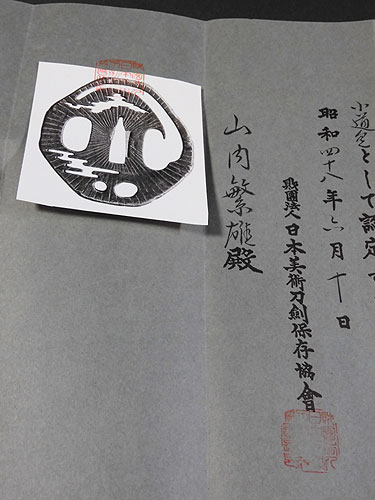 小道具として認定す
昭和四十八年六月十日
財團法人日本美術刀剣保存協會
山内繁雄殿